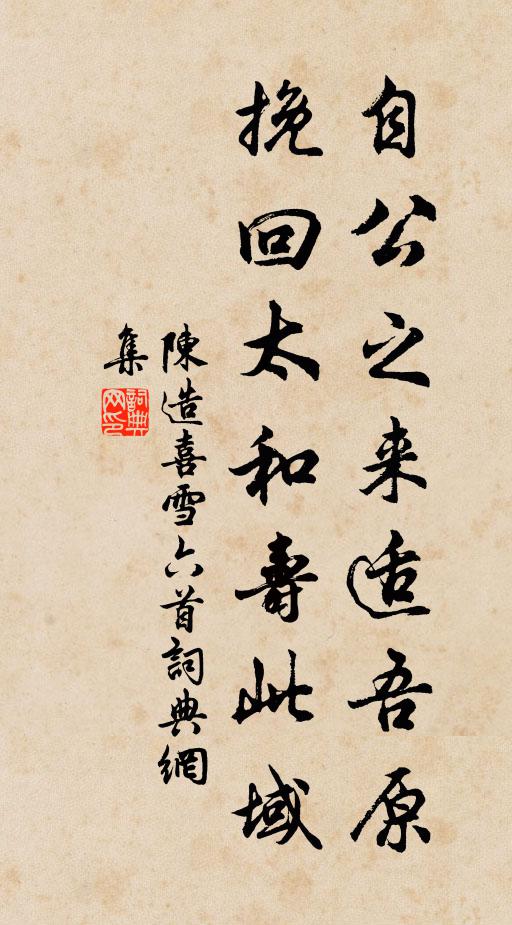 自公之来适吾原
挽回太和壽此域
陳造喜雪六首詞典網
集
詞典网印